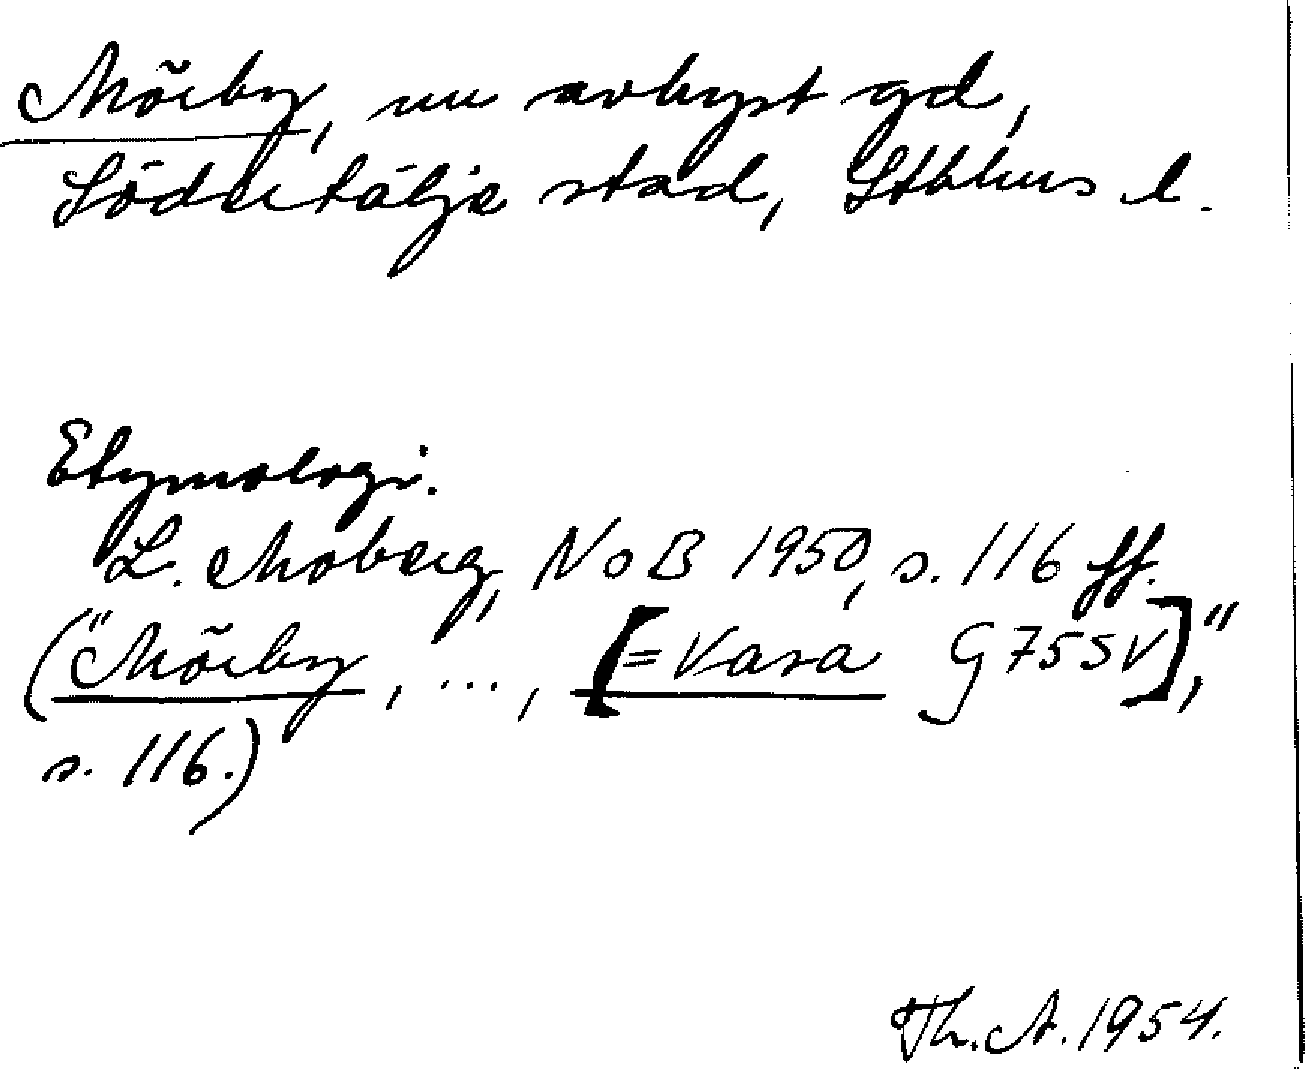 Mörby, nu avhyst gd,
Södertälje stad, Sthlms l.
Etymologi.
L. Moberg, NoB 1950, s. 116 ff.
("Mörby, ..., [= Vasa G 7 55 V],"
s. 116.)
Th. A. 1954.